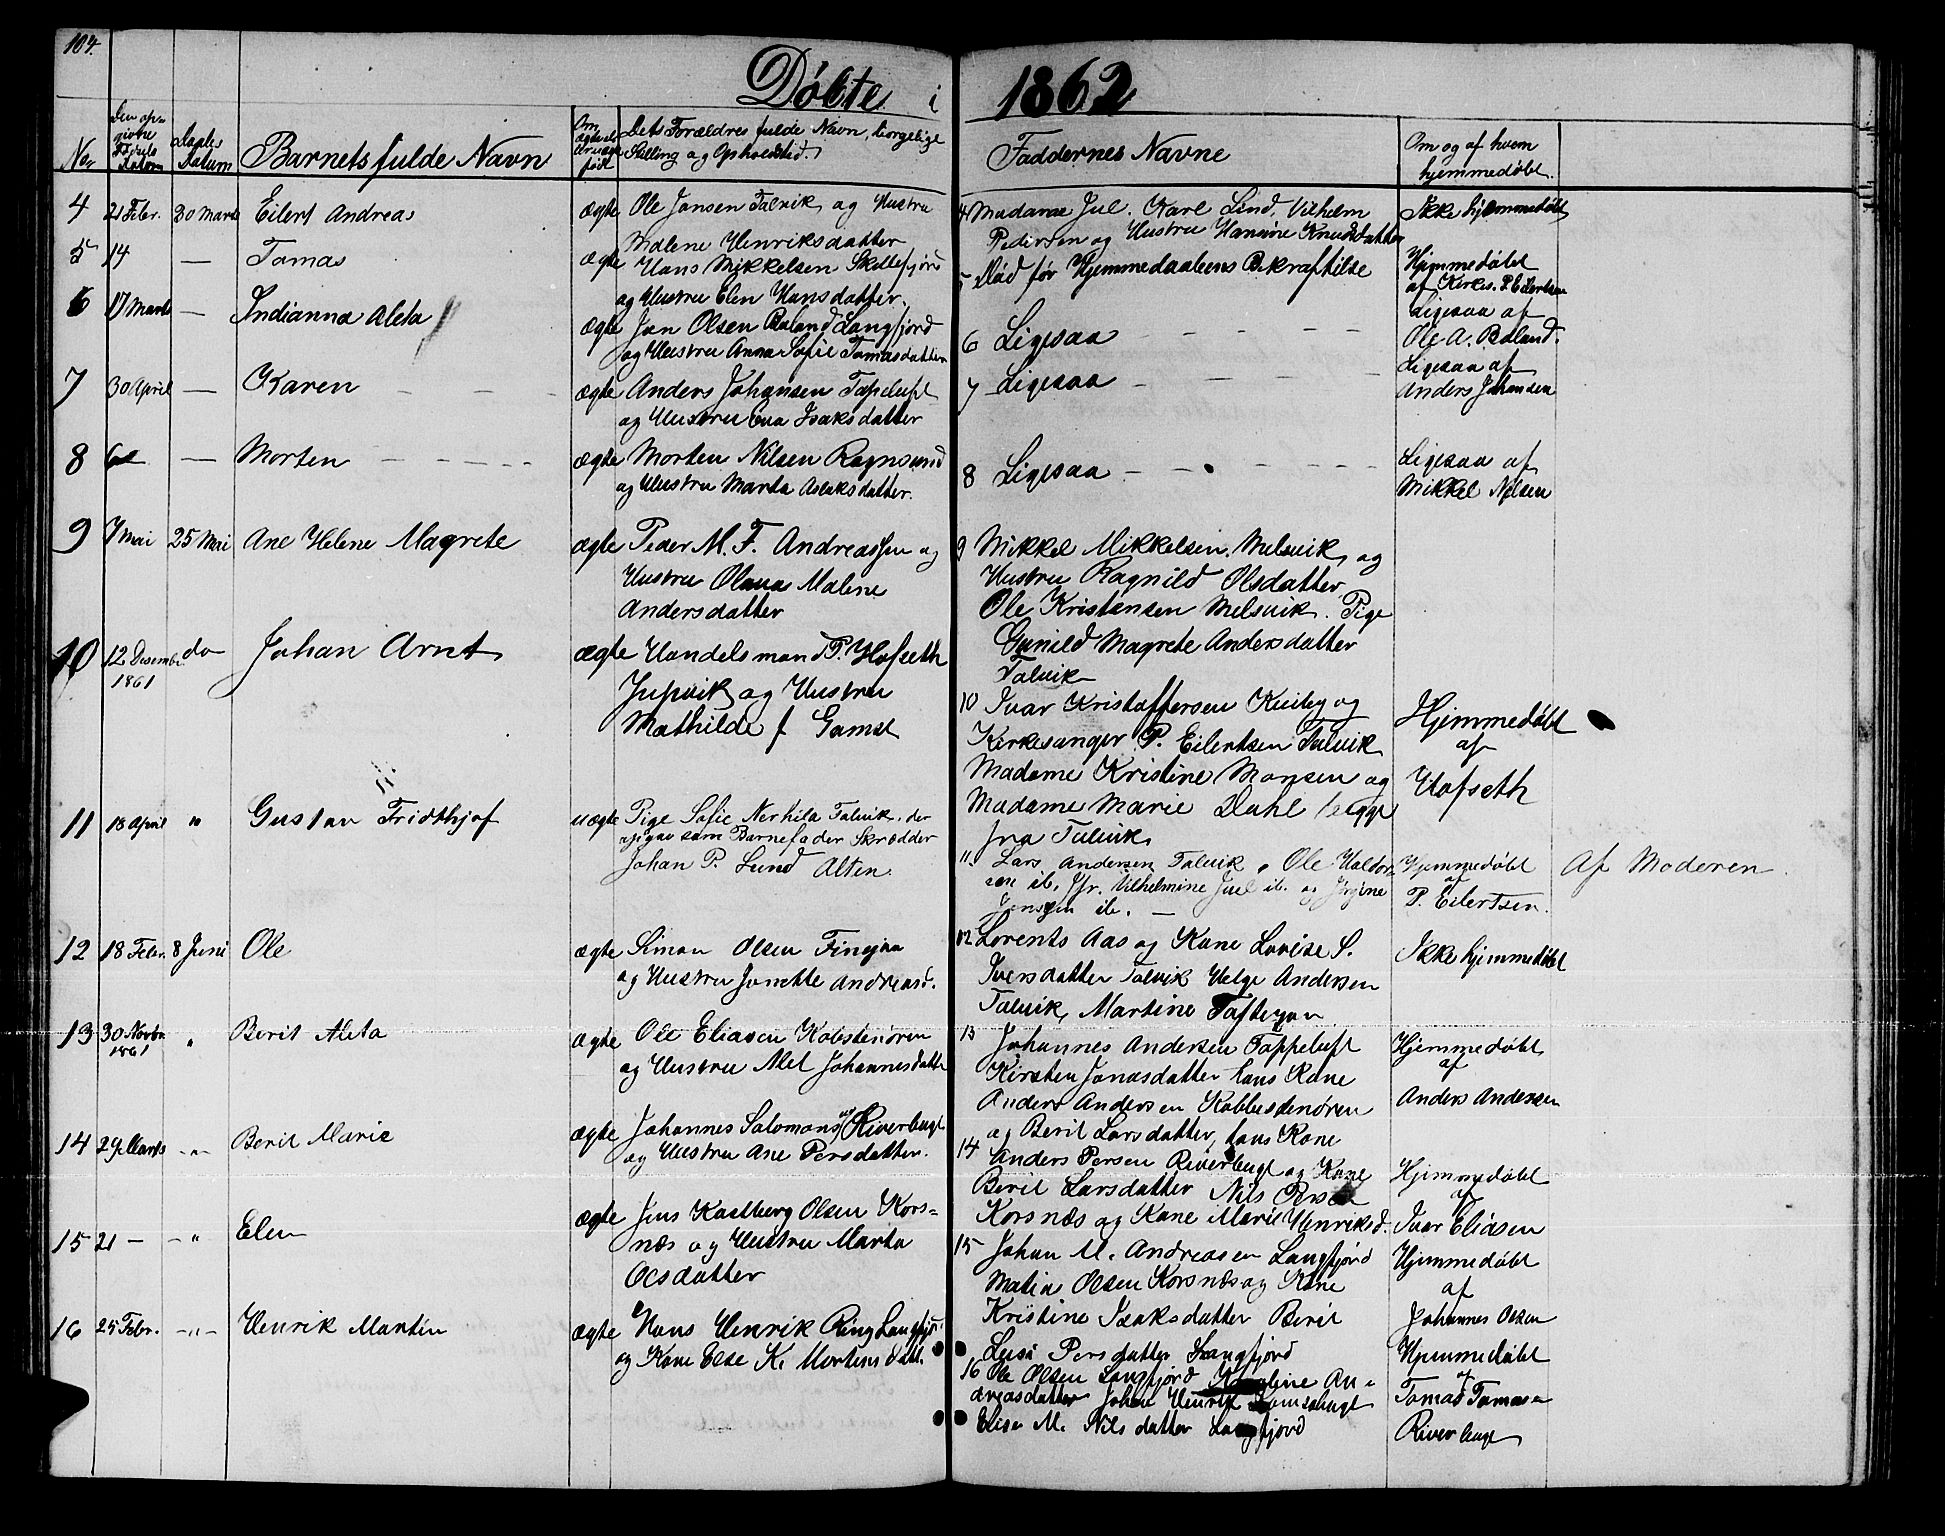 104.
Döbte i 1862
No.
Den opgivne Fødsels Datum
Daabs Datum
Barnets fulde Navn
Om ægte el. uægte født
Dets Forældres fulde Navn, borgelige Stilling og Opholdstid.
Faddernes Navne
Om og af hvem hjemmedøbt.
4 21 Febr. 30 Marts Eilert Andreas ægte Ole Jansen Talvik og Hustru
Malene Henriksdatter
4 Madame Jul. Karl Lind. Vilhelm
Pedersen og Hustru Hansine Knudsdatter
Ikke hjemmedøbt
5 14 — Tomas ægte Hans Mikkelsen Skillefjord
og Hustru Elen Hansdatter.
5 Død før Hjemmedaabens Bekræftilse
Hjemmedøbt
af Kirkes. P. Eilertsen
6 17 Marts — Indianna Aleta ægte Jan Olsen Boland Langfjord
og Hustru Anna Sofie Tomasdatter
6 Ligesaa
Ligesaa af
Ole A. Boland.
7 30 April — Karen ægte Anders Johansen Tapeluft
og Hustru Eva Isaksdatter
7 Ligesaa
Ligesaa af
Anders Johansen
8 — Morten ægte Morten Nilsen Rognsund
og Hustru Marta Aslaksdatter.
8 Ligesaa
Ligesaa af
Mikkel Nilsen
9 7 Mai 25 Mai Ane Helene Magrete ægte Peder M. F. Andreassen og
Hustru Olava Malene
Andersdatter
9 Mikkel Mikkelsen Melsvik, og
Hustru Ragnild Olsdatter,
Ole Kristensen Melsvik. Pige
Gunild Magrete Andersdatter
Talvik
10 12 Desembr. 1861 do Johan Arnt ægte Handelsmand P. Hofseth
Jupvik og Hustru
Mathilde f Gamst
10 Ivar Kristoffersen Kviby og
Kirkesanger P. Eilertsen Talvik
Madame Kristine Monsen og
Madame Marie Dahl begge
fra Talvik.
Hjemmedøbt
af
Hofseth
11 18 April " Gustav Fridthjof uægte Pige Sofie Nerhila Talvik, der
opgav som Barnefader Skrædder
Johan P. Lund Alten.
11. Lars Andersen Talvik, Ole Haldor
sen ib. Jfr. Vilhelmine Juel ib. og
Jensen ib. —
Hjemmedøbt
af
P. Eilertsen.
Af Moderen.
12 18 Febr. 8 Juni Ole ægte Simon Olsen
og Hustru Janette Andreasd.
12 Lorents Aas og Kone Lovise S.
Iversdatter Talvik Helge Andersen
Talvik, Martine
Ikke hjemmedøbt
13 30 Novbr. 1861 " Berit Aleta ægte Ole Eliasen Kobestenøren
og Hustru Alet Johannesdatter
13 Johannes Andersen Tappeluft
Kirsten Jonasdatter hans Kone
Anders Andersen Kobbestenøren
og Berit Larsdatter, hans Kone
Hjemmedøbt
af
Anders Andersen
14 29 Marts -"- Berit Marie ægte Johannes Salomons Riverbugt
og Hustru Ane Persdatter.
14 Anders Persen Riverbugt og Kone
Berit Larsdatter Nils Persen
Korsnæs og Kone Marit Henriksd.
Hjemmedøbt
af
Ivar Eliasen
15 21 — -"- Elen ægte Jens Kaalberg Olsen Kors=
næs og Hustru Marta
Olsdatter
15 Johan M. Andreasen Langfjord
Matis Olsen Korsnæs og Kone
Kristine Isaksdatter Berit
Lusi Persdatter Langfjord
Hjemmedøbt
af
Johannes Olsen
16 25 Febr. -"- Henrik Martin ægte Hans Henrik Ring Langfjor
og Kone Else K. Mortensdatt.
16 Ole Olsen Langfjord Karoline An=
dreasdatter Johan Henrik Komsabugt
Elise M. Nilsdatter Langfjord
Hjemmedøbt
af
Tomas Tomasen
Riverbugt